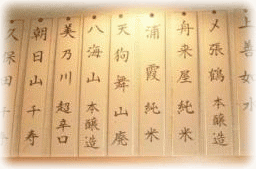 上善如水
〆張鶴 本醸造
舟来屋 純米
浦霞 純米
天狗舞 山廃
八海山 本醸造
美乃川 超辛口
朝日山 千寿
久保田 千寿